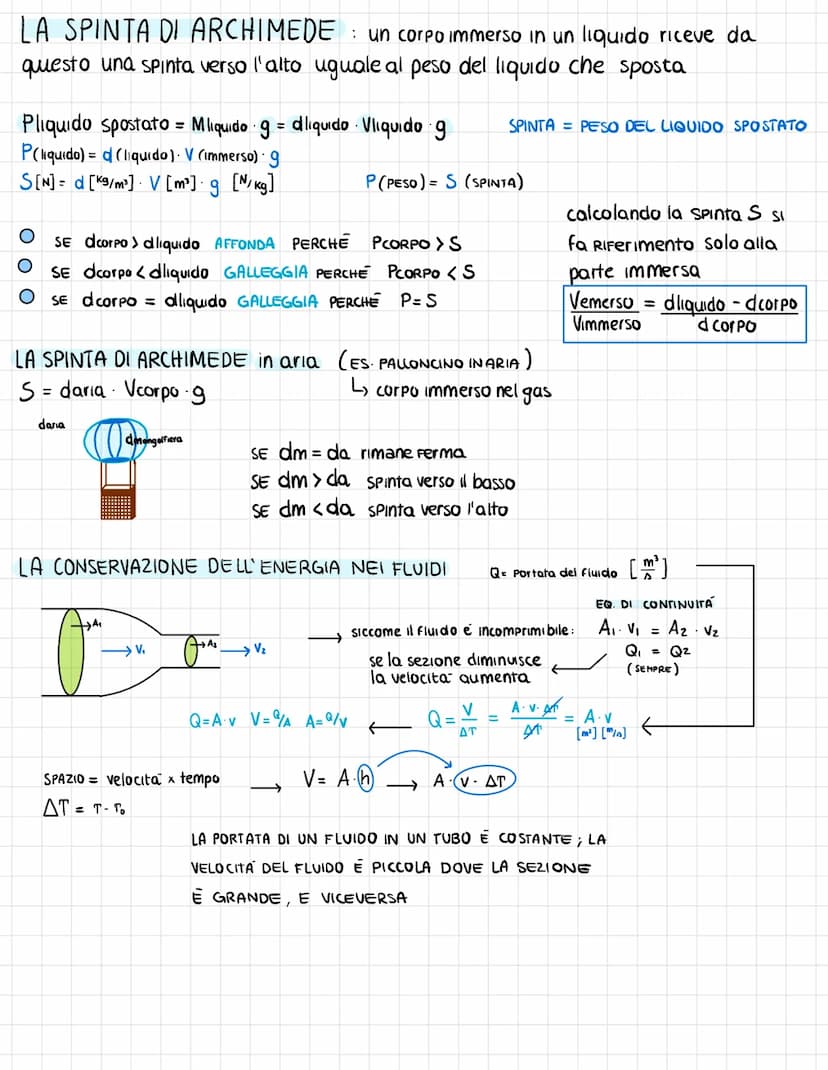 LA SPINTA DI ARCHIMEDE : un corpo immerso in un liquido riceve da
questo una spinta verso l'alto uguale al peso del liquido che sposta
Pliquido spostato = Mliquido · g = dliquido · Vliquido · g
SPINTA = PESO DEL LIQUIDO SPOSTATO
P(liquido) = d (liquido) · V (immerso) · g
S[N] = d [kg/m³] · V [m³] · g [N/kg]
P(PESO) = S (SPINTA)
SE dcorpo > dliquido AFFONDA PERCHÉ PCORPO > S
SE dcorpo < dliquido GALLEGGIA PERCHÉ PCORPO < S
SE dcorpo = dliquido GALLEGGIA PERCHÉ P = S
calcolando la spinta S si
fa riferimento solo alla
parte immersa
Vemerso / Vimmerso = dliquido - dcorpo / dcorpo
LA SPINTA DI ARCHIMEDE in aria (ES. PALLONCINO IN ARIA)
S = daria · Vcorpo · g
↳ corpo immerso nel gas
daria
dmongolfiera
SE dm = da rimane ferma
SE dm > da spinta verso il basso
SE dm < da spinta verso l'alto
LA CONSERVAZIONE DELL'ENERGIA NEI FLUIDI
Q = Portata del fluido [m³/s]
A₁
V₁
A₂
V₂
→ siccome il fluido è incomprimibile:
EQ. DI CONTINUITÀ
A₁ · V₁ = A₂ · V₂
Q₁ = Q₂
(SEMPRE)
se la sezione diminuisce
la velocità aumenta
Q = A·v V = Q/A A = Q/V ← Q = V/ΔT = A·v·ΔT/ΔT = A·v
[m²] [m/s]
SPAZIO = velocità x tempo → V = A·h → A·(v · ΔT)
ΔT = T - T₀
LA PORTATA DI UN FLUIDO IN UN TUBO È COSTANTE ; LA
VELOCITÀ DEL FLUIDO È PICCOLA DOVE LA SEZIONE
È GRANDE, E VICEVERSA